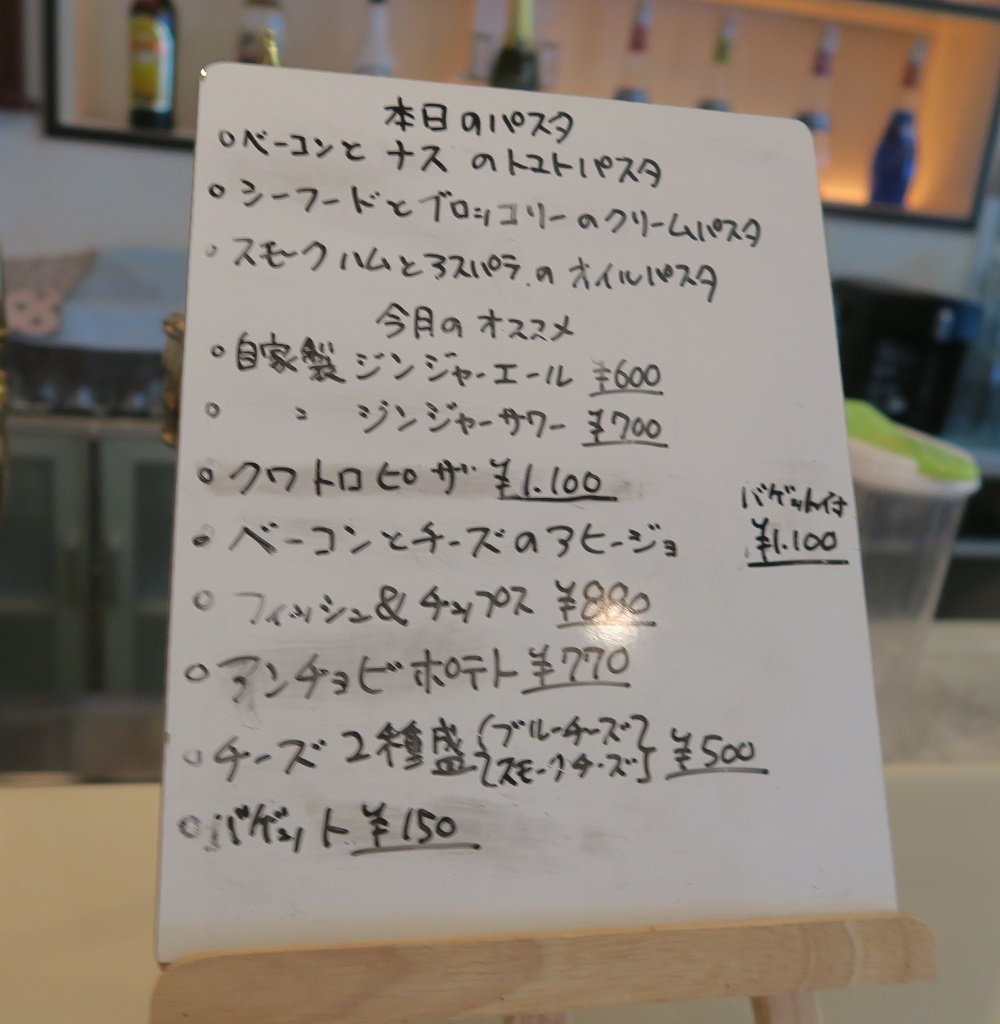 本日のパスタ
○ベーコンと ナス のトマトパスタ
○シーフードとブロッコリーのクリームパスタ
○スモークハムとアスパラ.のオイルパスタ
今月のオススメ
○自家製 ジンジャーエール ¥600
○ 〃 ジンジャーサワー ¥700
○クワトロピザ ¥1.100
○ベーコンとチーズのアヒージョ バゲット付 ¥1.100
○フィッシュ&チップス
○アンチョビポテト ¥770
○チーズ2種盛 {ブルーチーズ}
{スモークチーズ} ¥500
○バゲット ¥150